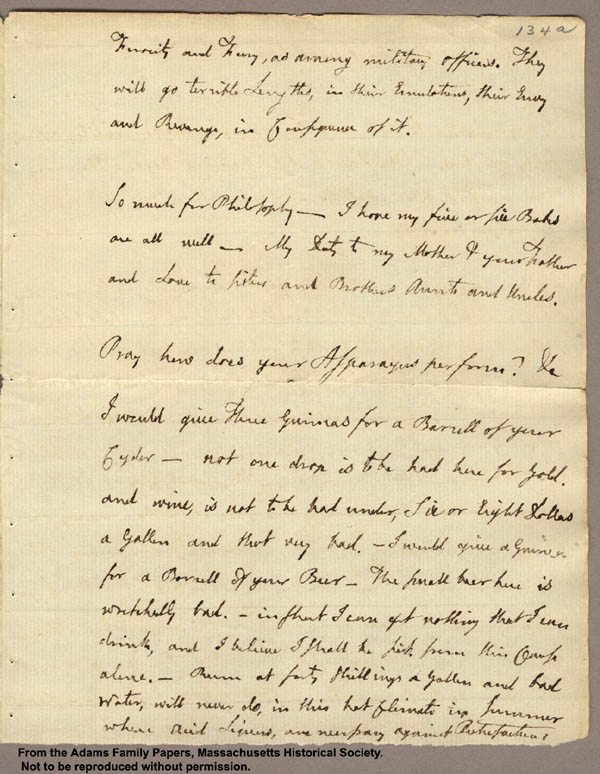 134a
Ferocity and Fury, as among military officers. They
will go terrible Lengths, in their Emulations, their Envy
and Revenge, in Consequence of it.
So much for Philosophy — I hope my five or six Babes
are all well — My Duty to my Mother & your Father
and Love to sisters and Brothers Aunts and Uncles.
Pray how does your Asparagus perform? &c
I would give Three Guineas for a Barrell of your
Cyder — not one drop is to be had here for Gold.
and wine, is not to be had under, Six or Eight Dollars
a Gallon and that very bad. — I would give a Guinea
for a Barrell of your Beer — The small beer here is
wretchedly bad. — in short I can get nothing that I can
drink, and I believe I shall be sick from this Cause
alone. — Rum at forty shillings a Gallon and bad
Water, will never do, in this hot Climate in Summer
where acid Liquors, are necessary against Putrefaction.
From the Adams Family Papers, Massachusetts Historical Society.
Not to be reproduced without permission.